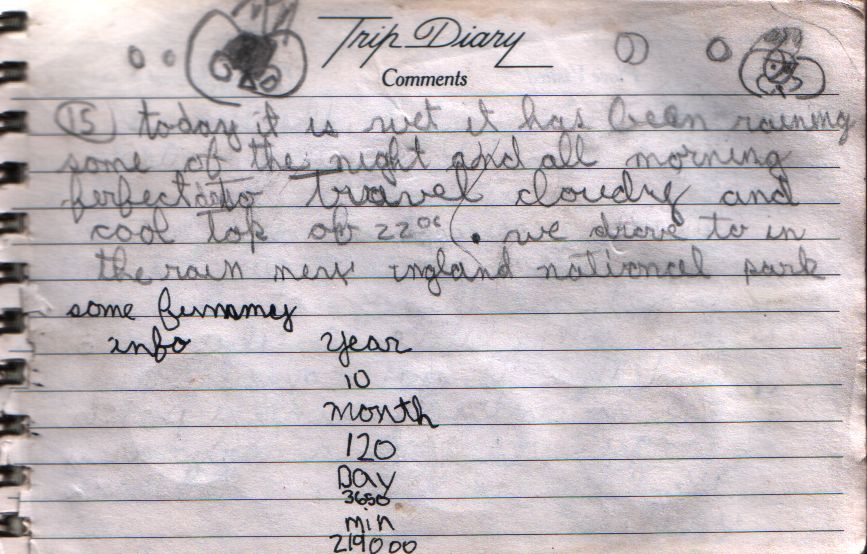 Trip Diary
Comments
15 today it is wet it has been raining
some of the night and all morning
to travel cloudy and
cool top of 22°c. we drove to in
the rain new england national park
some funnny
info
year
10
month
120
Day
3650
min
219000